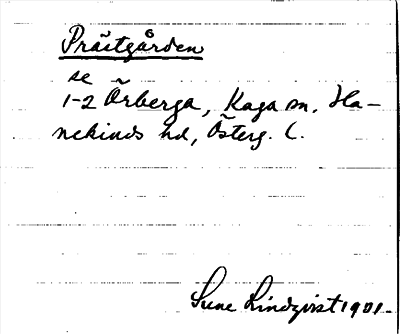 Prästgården
se
1-2 Örberga, Kaga sn, Ha-
nekinds hd, Österg. l.
Sune Lindqvist 1901.